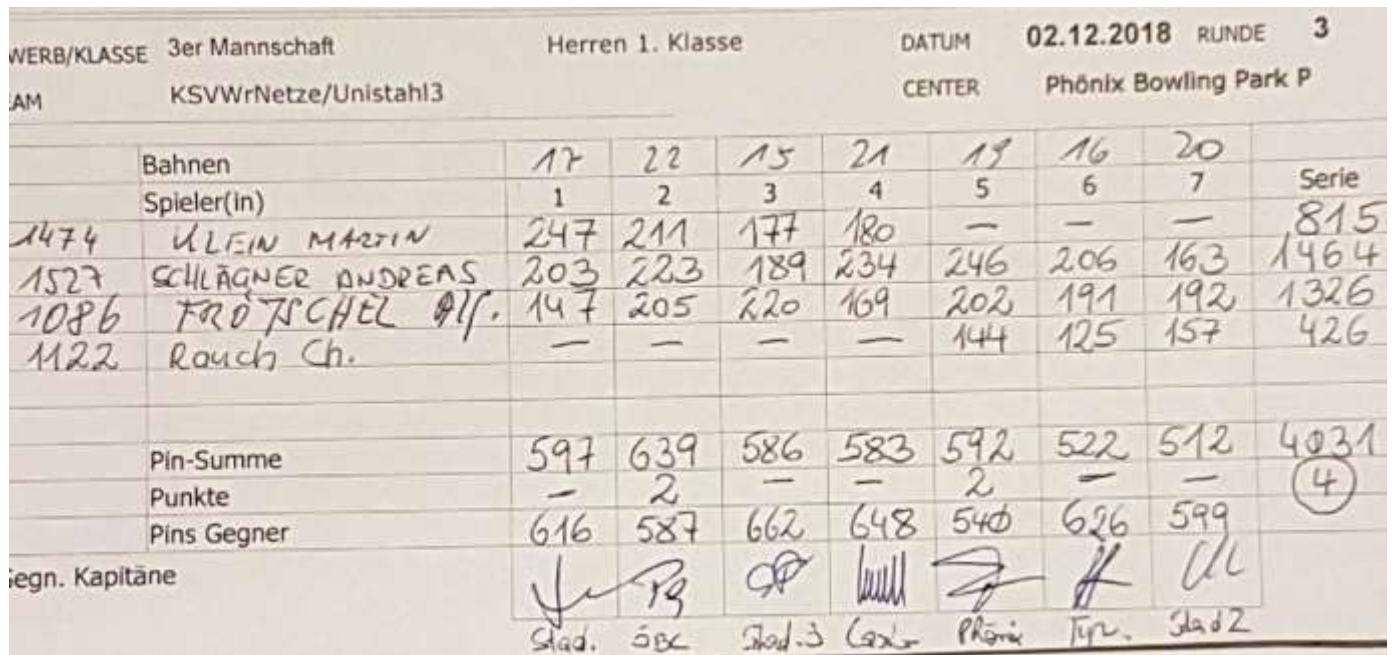 WERB/KLASSE 3er Mannschaft Herren 1. Klasse DATUM 02.12.2018 RUNDE 3
AM KSVWrNetze/Unistahl3 CENTER Phönix Bowling Park P
Bahnen 17 22 15 21 19 16 20
Spieler(in) 1 2 3 4 5 6 7 Serie
1474 KLEIN MARTIN 247 211 177 180 — — — 815
1527 SCHLAGNER ANDREAS 203 223 189 234 246 206 163 1464
1086 FRÖTSCHEL Alf. 147 205 220 169 202 191 192 1326
1122 Rauch Ch. — — — — 144 125 157 426
Pin-Summe 597 639 586 583 592 522 512 4031
Punkte — 2 — — 2 — — 4
Pins Gegner 616 587 662 648 540 626 599
Gegn. Kapitäne
Stad. ÖBC Stad.3 Phönix Stad2